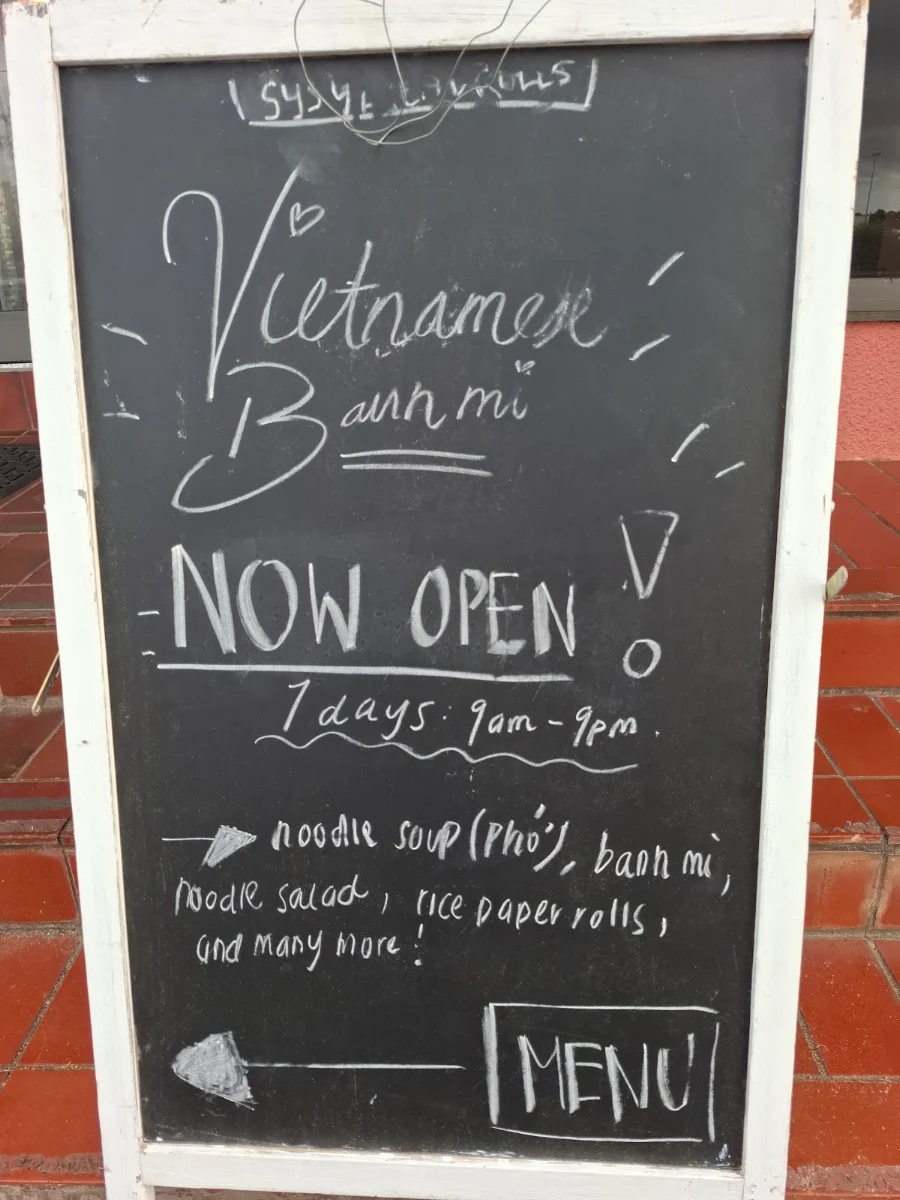 Vietnamese
Banh mi
NOW OPEN!
7 days: 9am - 9pm.
noodle soup (phở), banh mi,
noodle salad, rice paper rolls,
and many more!
MENU